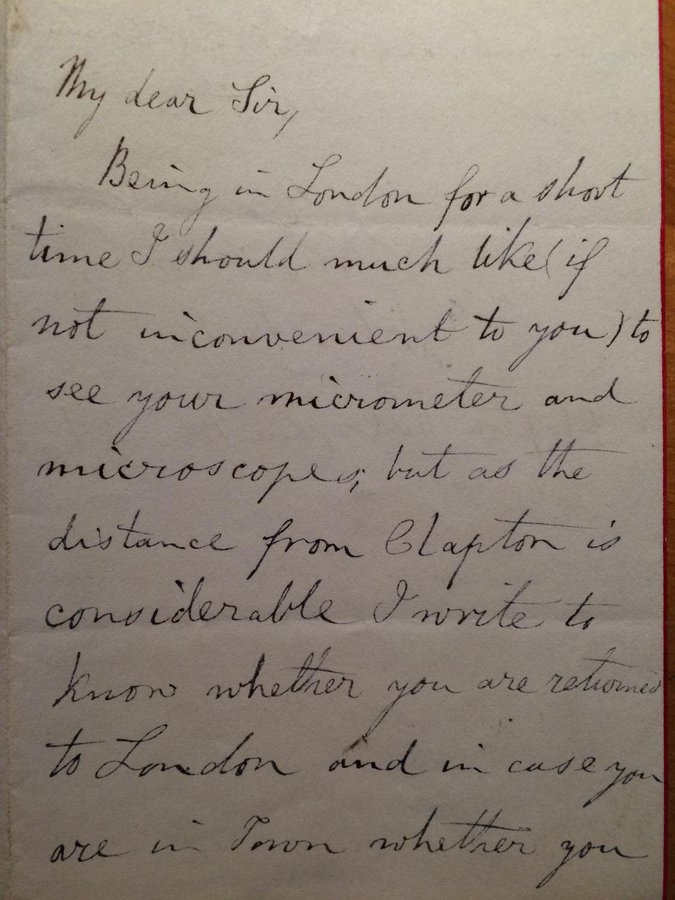 My dear Sir,
Being in London for a short
time I should much like (if
not inconvenient to you) to
see your micrometer and
microscopes; but as the
distance from Clapton is
considerable I write to
know whether you are returned
to London and in case you
are in Town whether you